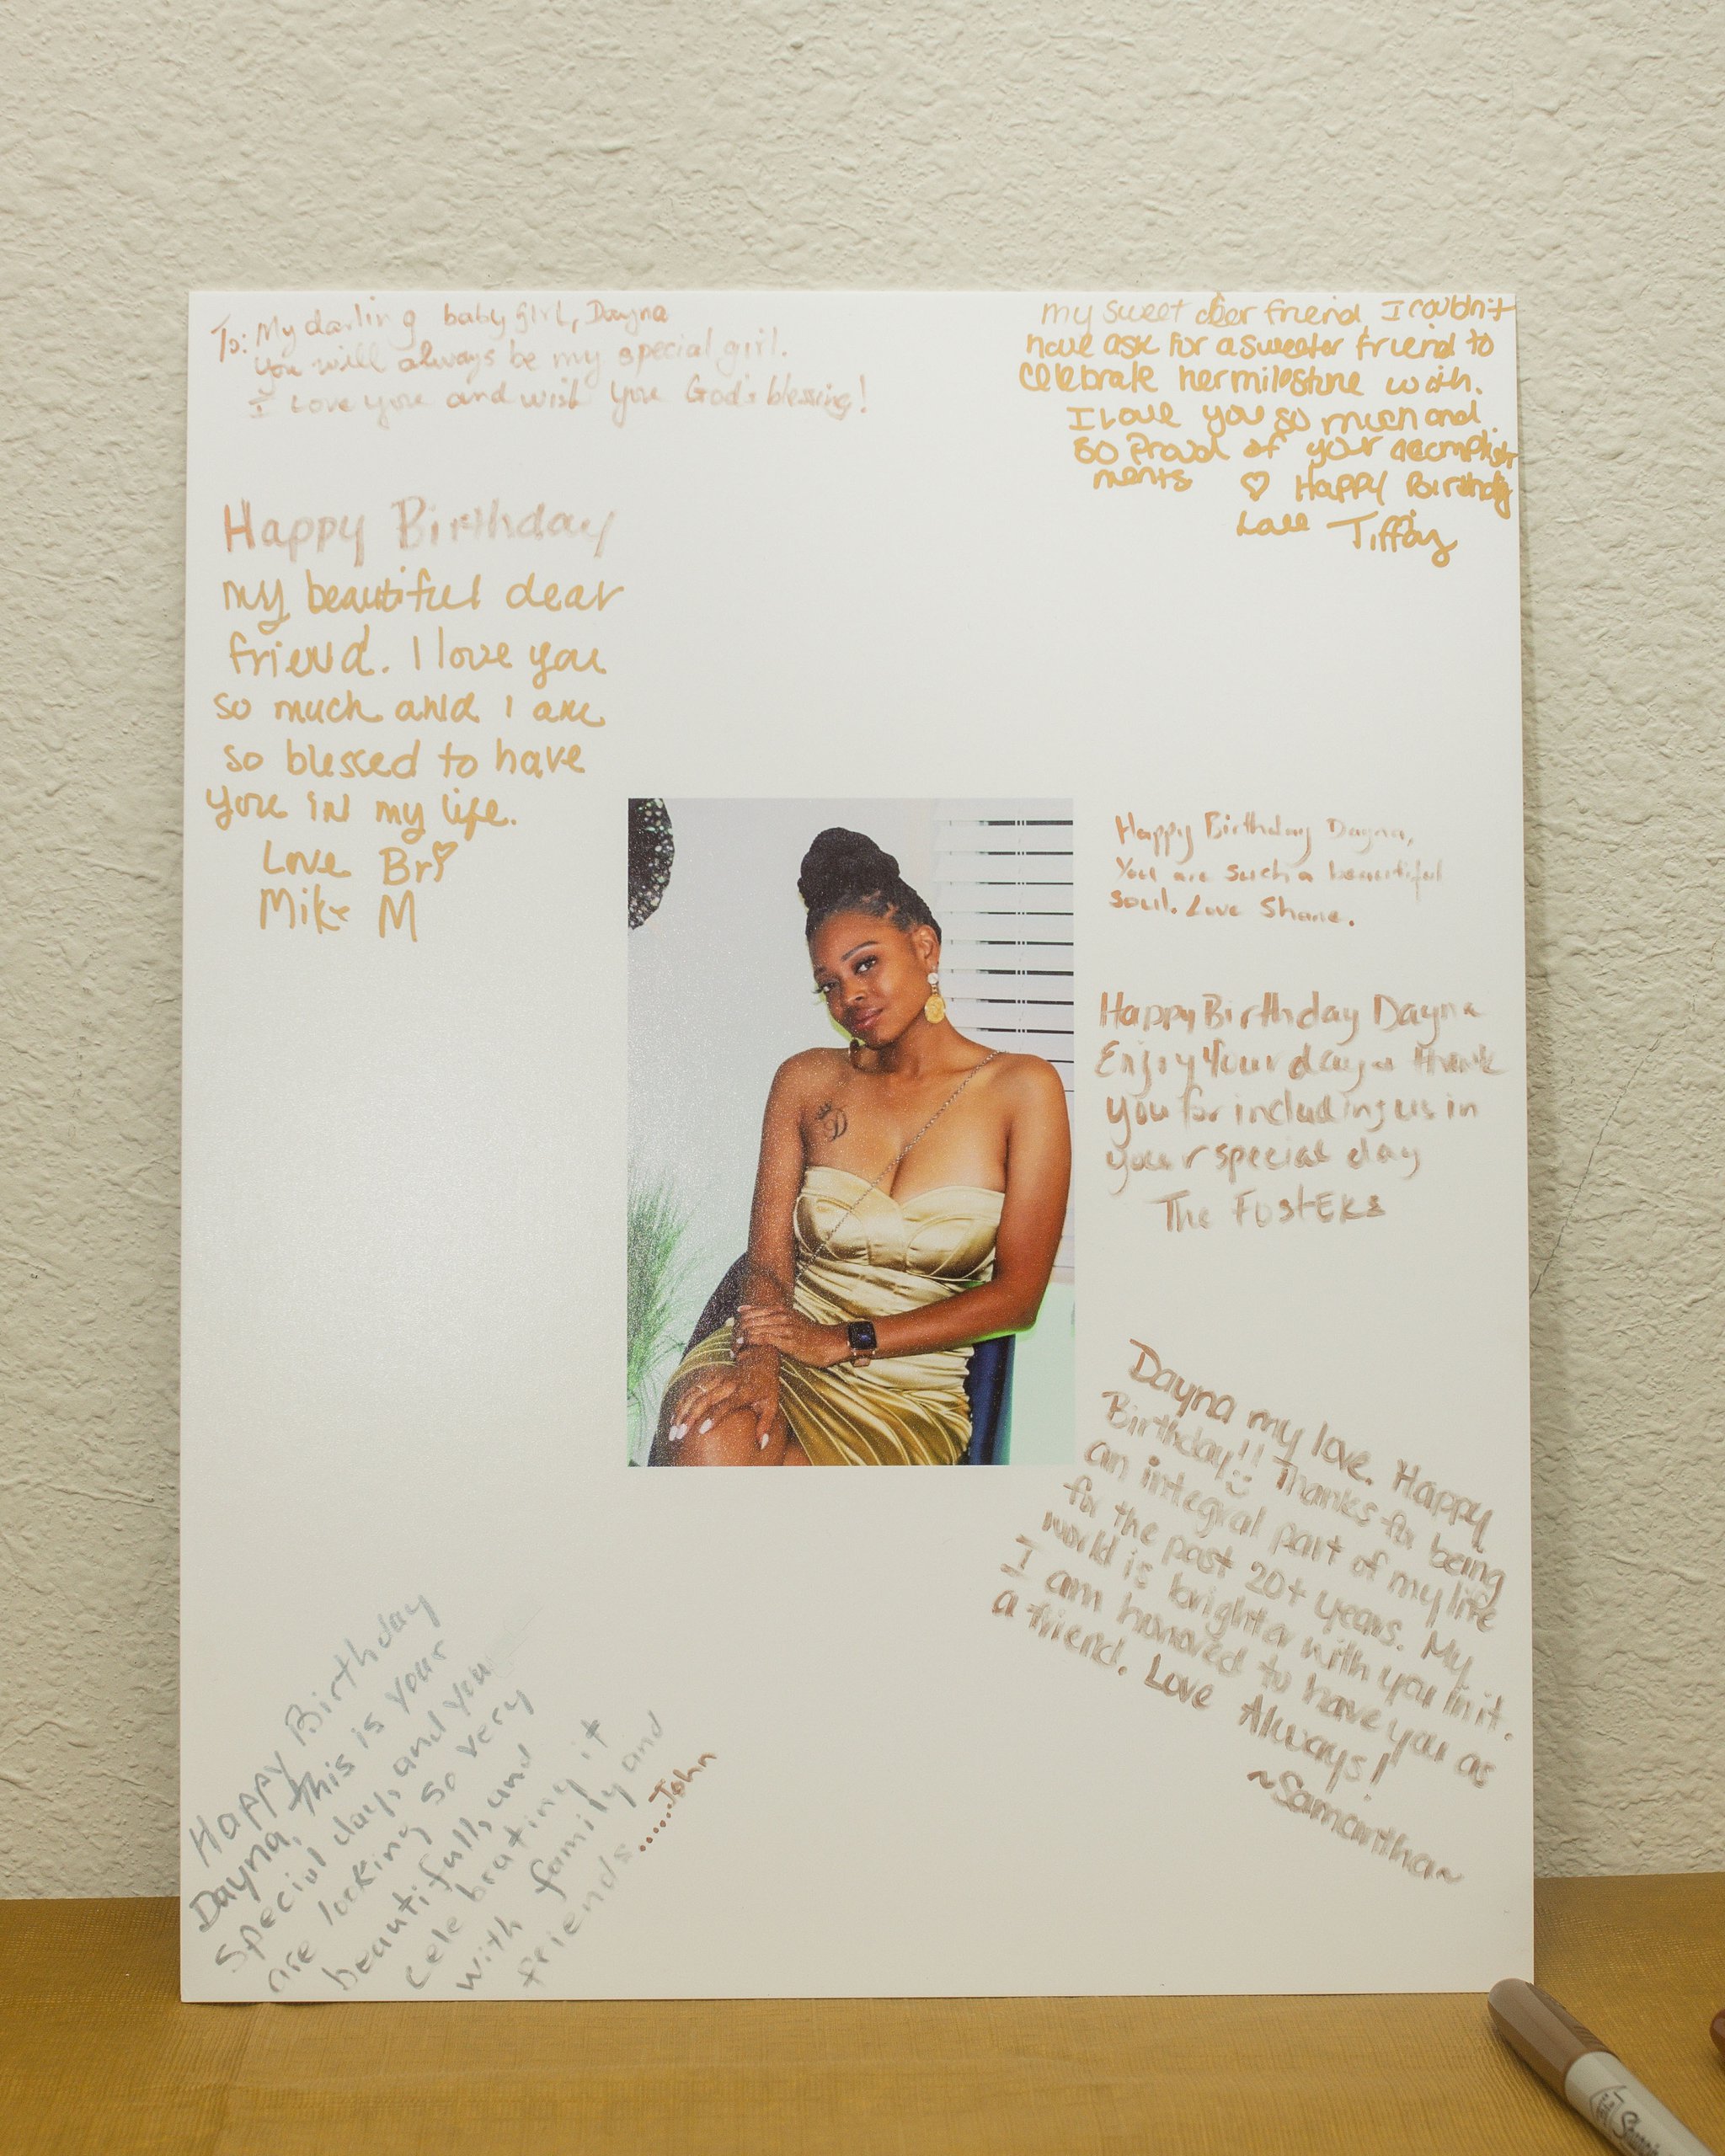 To: My darling baby girl, Dayna
You will always be my special girl.
I Love you and wish you God's blessing!
my sweet deer friend, I couldn't
have ask for a sweeter friend to
celebrate her milestone with.
I love you so much and
so proud of your accomplish
ments ♡ Happy Birthday
Love Tiffany
Happy Birthday
my beautiful dear
friend. I love you
so much and I am
so blessed to have
you in my life.
Love Bri
Mike M
Happy Birthday Dayna,
You are such a beautiful
soul. Love Shane.
Happy Birthday Dayna
Enjoy Your day & thank
you for including us in
your special day
The Fosters
D
Dayna my love. Happy
Birthday!! Thanks for being
an integral part of my life
for the past 20+ years. My
world is brighter with you in it.
I am honored to have you as
a friend. Love Always!
~Samantha~
Happy Birthday
Dayna, this is your
special day, and you
are looking so very
beautifull, and
celebrating it
with family and
friends......John
Sharpie